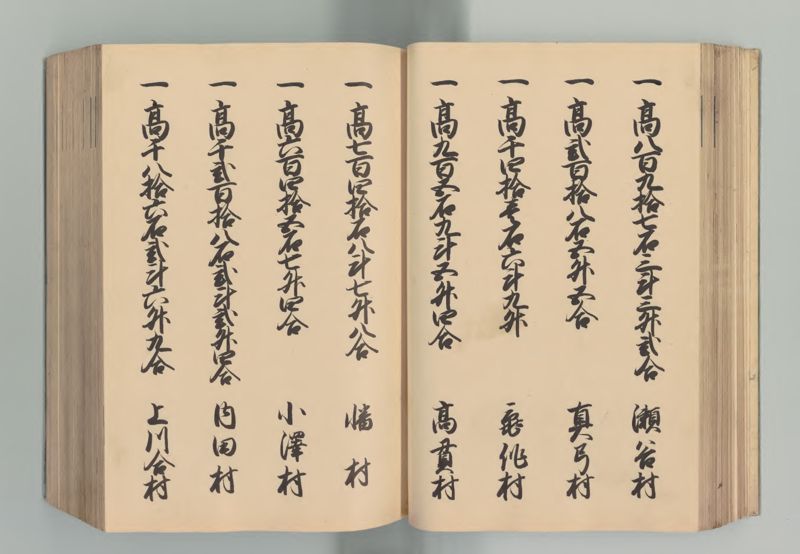 一高八百九拾七石三斗三升弐合 瀬谷村
一高弐百拾八石五升五合 真弓村
一高千四拾壱石六斗九升 亀作村
一高九百五石九斗五升四合 高貫村
一高七百四拾石八斗七升八合 幡村
一高六百四拾五石七升四合 小澤村
一高千弐百拾八石弐斗弐升四合 内田村
一高千八拾六石弐斗六升九合 上川合村